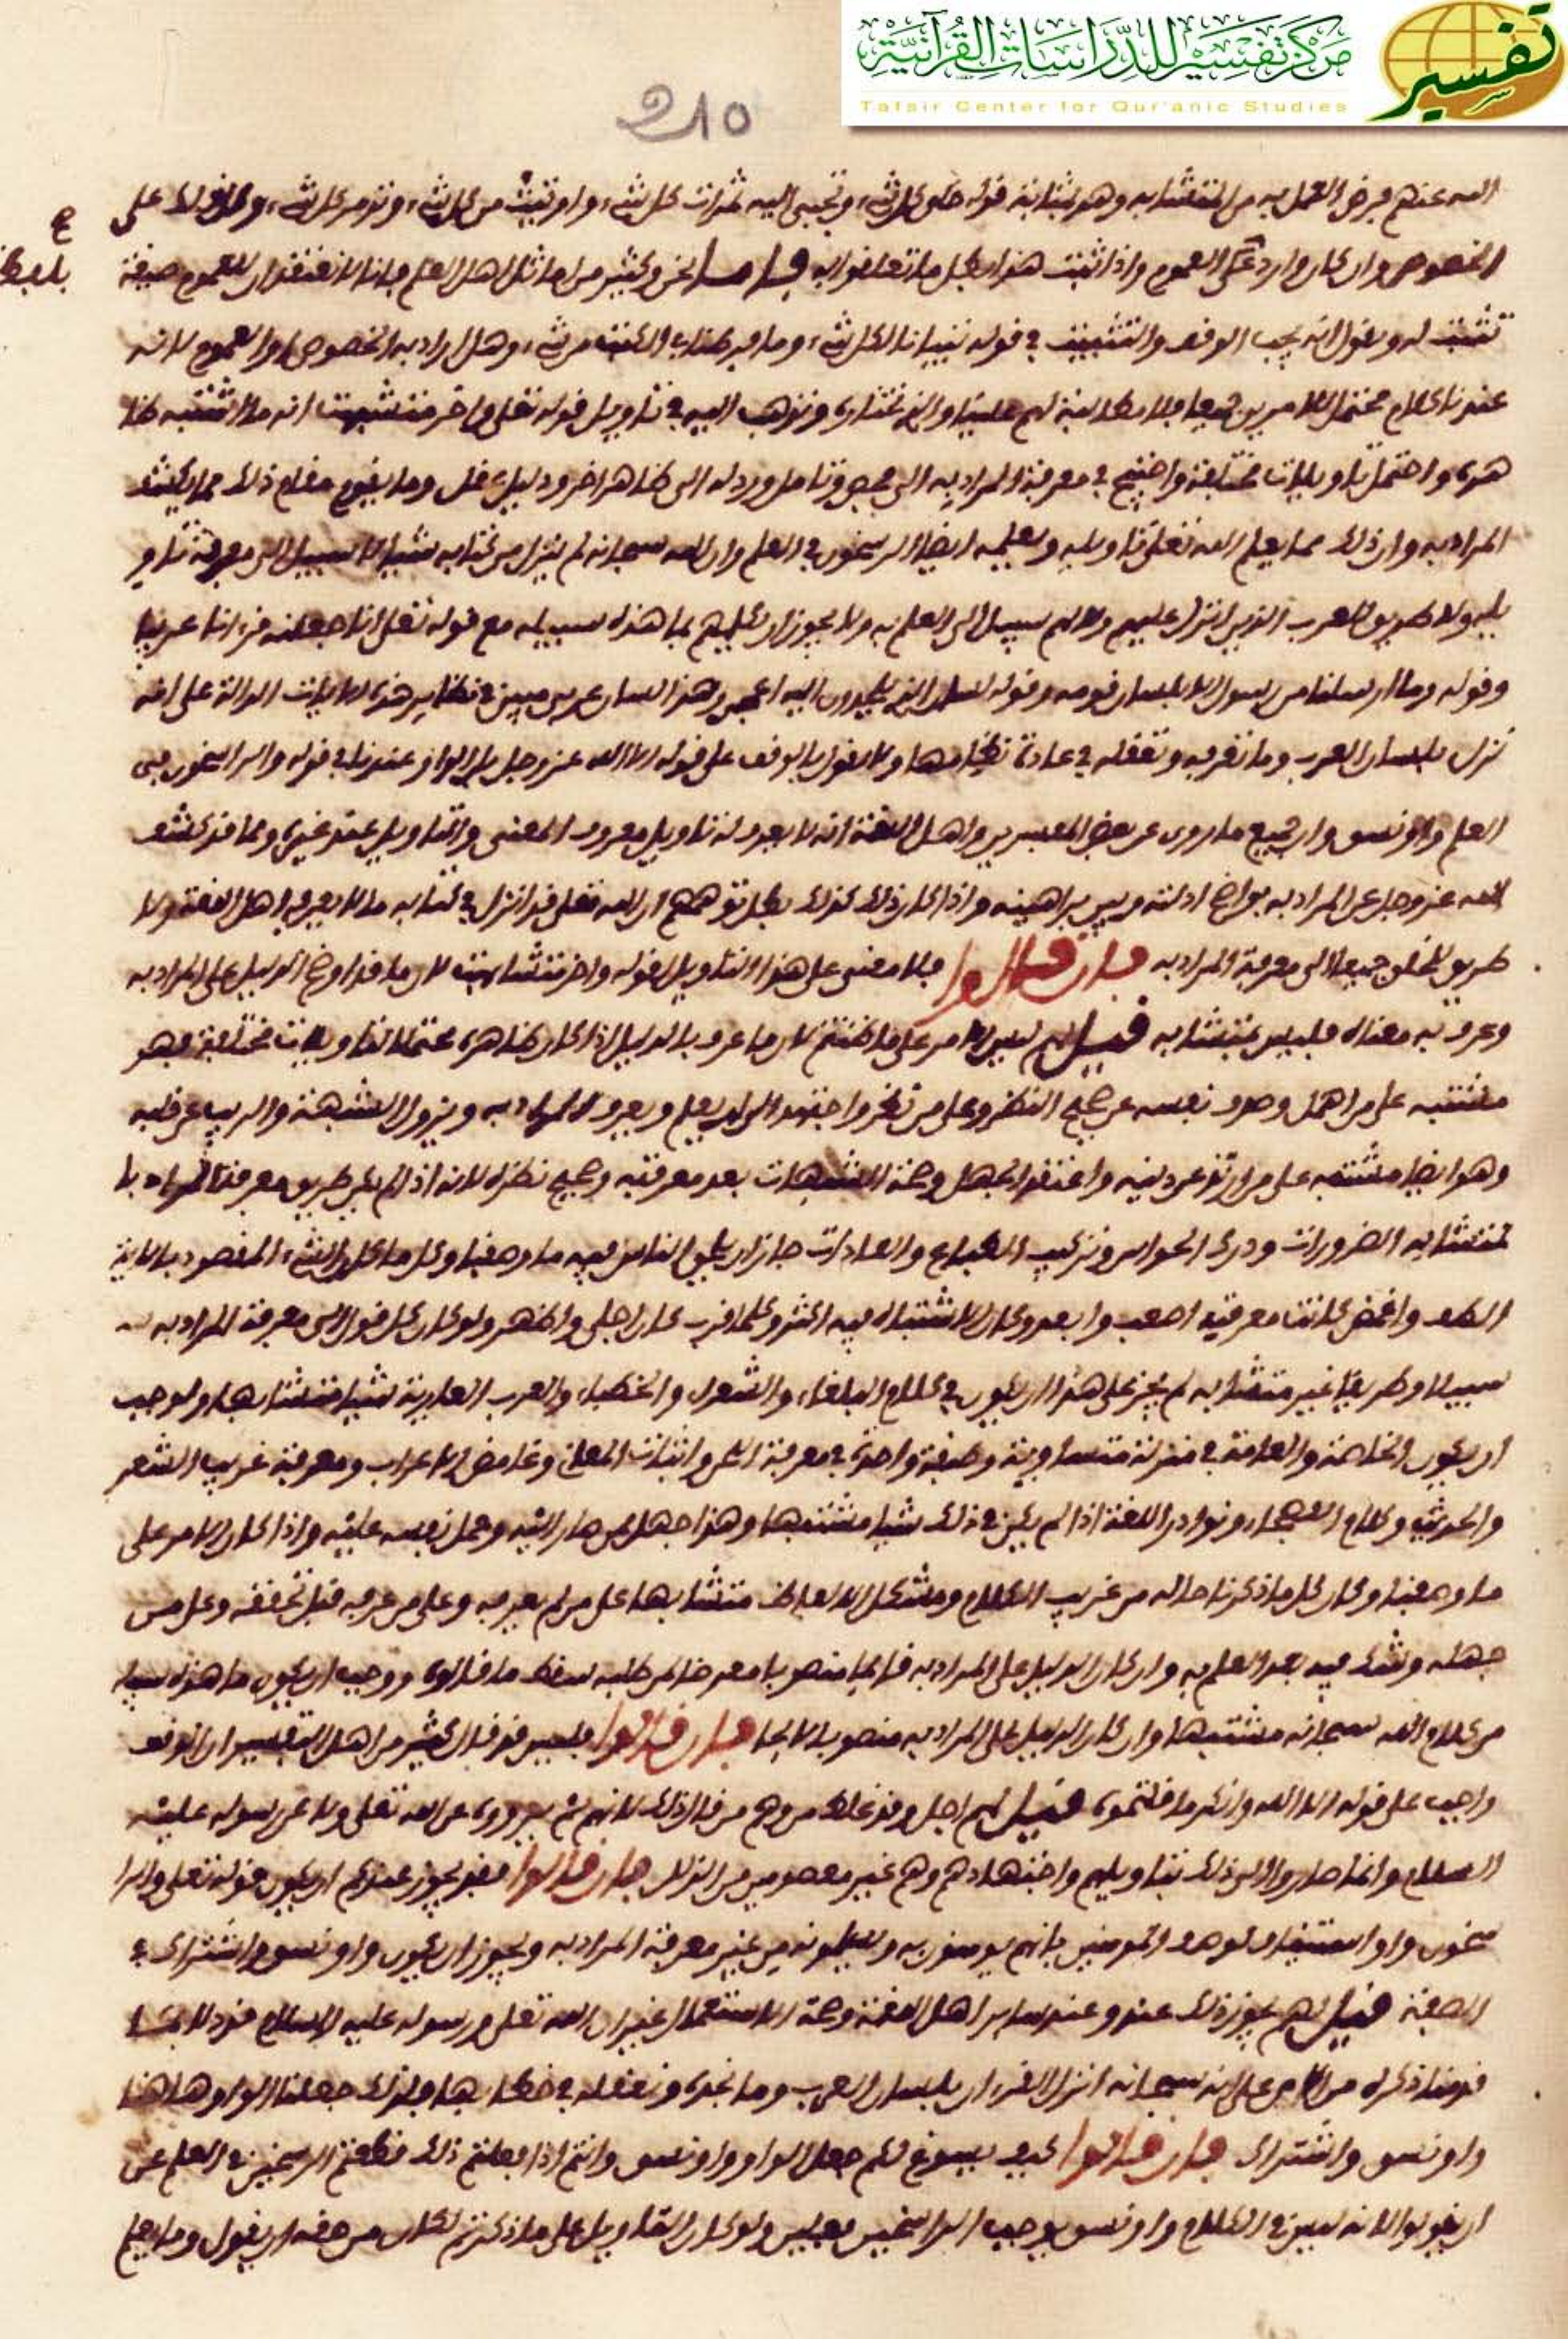 مركز تفسير للدراسات القرآنية
تفسير
Tafsir Center for Qur'anic Studies
210
الله عنهم فرض العمل به من المتشابه وهو بمثابة قوله خلق كل شيء وتجبى اليه ثمرات كل شيء واوتيت من كل شيء وتدمر كل شيء على
الخصوص وان كان واردا على العموم واذا ثبت هذا بطل ما تعلقوا به فاما نحن وكثير من اهل العلم فاننا لا نعتقد ان للعموم صيغة
تثبت له ونقول انه يجب الوقف والتثبيت في قوله تبيانا لكل شيء وما فرطنا في الكتب من شيء وهل اراد به الخصوص او العموم لانه
عندنا كلام محتمل للامرين جميعا فلا مطالبة لهم علينا والذي نختاره ونذهب اليه في تاويل قوله تعلى واخر متشبهت انه ما اشتبه ظا
هره واحتمل تاويلات مختلفة واحتيج في معرفة المراد به الى فحص وتامل ورده الى ظاهر اخر ودليل عقل وما يقوم مقام ذلك مما يكشف
المراد به وان ذلك مما يعلم الله تعلى تاويله ويعلمه ايضا الرسخون في العلم وان الله سبحانه لم ينزل من كتابه شيئا لا سبيل الى معرفة تاو
يله ولا طريق للعرب الذين انزل عليهم ولا لهم سبيل الى العلم به ولا يجوز ان يكلمهم بما هذه سبيله مع قوله تعلى انا جعلنه قرءانا عربيا
وقوله وما ارسلنا من رسول الا بلسان قومه وقوله لسان الذي يلحدون اليه اعجمي وهذا لسان عربي مبين في نظاير هذه الايات الدالة على انه
نزل بلسان العرب وما تعرفه وتعقله في عادة خطابها ولا نقول بالوقف على قوله الا الله عز وجل بل الواو عندنا في قوله والراسخون في
العلم واو نسق وان جميع ما روي عن بعض المفسرين واهل اللغة انه لا يعرف له تاويل معروف المعنى والتاويل عند غيره ومما قد كشف
الله عز وجل عن المراد به بواضح ادلته وبين براهينه واذا كان ذلك كذلك بطل توهمهم ان الله تعلى قد انزل في كتابه ما لا يعرفه اهل اللغة ولا
طريق للخلق جميعا الى معرفة المراد به فان قالوا فلا معنى على هذا التاويل لقوله واخر متشابهت لان ما قد اوضح الدليل على المراد به
وعرف به معناه فليس بمتشابه قيل لهم ليس الامر على ما ظننتم لان ما عرف بالدليل اذا كان ظاهره محتملا لتاويلات مختلفة فهو
مشتبه على من اهمل وصرف نفسه عن صحيح النظر وعلى من نظر واجتهد الى ان يعلم ويعرف المراد به ويزول الشبهة والريب عن قلبه
وهو ايضا مشتبه على من ارتد عن دينه واعتقد الجهل وصحة الشبهات بعد معرفته وصحيح نظره لانه اذا لم يكن طريق معرفة المراد با
لمتشابه الضرورات ودرك الحواس وتركيب الطباع والعادات جاز ان يكون الناس فيه ما وصفنا وكل ما كان الشيء المقصود بالاية
الطف واغمض كانت معرفته اصعب وابعد وكان الاشتباه فيه اكثر وكلما قرب كان اجلى واظهر ولو كان كل قول الى معرفة المراد به
سبيلا وطريقا غير متشابه لم يجز على هذا ان يكون في كلام البلغاء والشعراء والخطباء والعرب العاربة شيئا متشابها ولوجب
ان يكون الخاصة والعامة في منزلة متساوية وصفة واحدة في معرفة وابيات المعاني وغامض الاعراب ومعرفة غريب الشعر
والحديث وكلام الفصحاء ونوادر اللغة اذا لم يكن في ذلك شيئا مشتبها وهذا جهل ممن صار اليه وحمل نفسه عليه واذا كان الامر على
ما وصفنا وكان كل ما ذكرنا حاله من غريب الكلام ومشكل الالفاظ متشابها على من لم يعرفه وعلى من عرفه قبل تحققه وعلى من
جهله وشك فيه بعد العلم به وان كان الدليل على المراد به قايما منصوبا معرضا لمن طلبه سقط ما قالوه ووجب ان يكون ما هذه سبيله
من كلام الله سبحانه مشتبها وان كان الدليل على المراد به منصوبا لايحا فان قالوا فليس قد قال كثير من اهل التفسير ان الوقف
واجب على قوله الا الله وانكر ما قلتموه قيل لهم اجل وقد غلط من وهم من قال ذلك لانهم لم يرووه عن الله تعلى ولا عن رسوله عليه
السلام وانما صاروا الى ذلك بتاويلهم واجتهادهم وهم غير معصومين من الزلل فان قالوا فقد يجوز عندكم ان يكون قوله تعلى والرا
سخون واو استيناف لوصف المومنين بانهم يومنون به ويسلمونه من غير معرفة المراد به ويجوز ان يكون واو نسق واشتراك في
الصفة قيل لهم يجوز ذلك عندنا وعند ساير اهل اللغة وصحة الاستعمال غير ان الله تعلى ورسوله عليه السلام قد دلا بما
قدمنا ذكره من الاي على انه سبحانه انزل القرءان بلسان العرب وما تجده وتعقله في خطابها فلذلك جعلنا الواو هاهنا
واو نسق واشتراك فان قالوا كيف يسوغ لكم جعل الواو واو نسق وانتم اذا فعلتم ذلك قطعتم الرسخين في العلم عن
ان يقولوا لانه ليس في الكلام واو نسق يوجب للراسخين فعلين ولو كان التاويل على ما ذكرتم لكان من حقه ان يقول وما يعلم